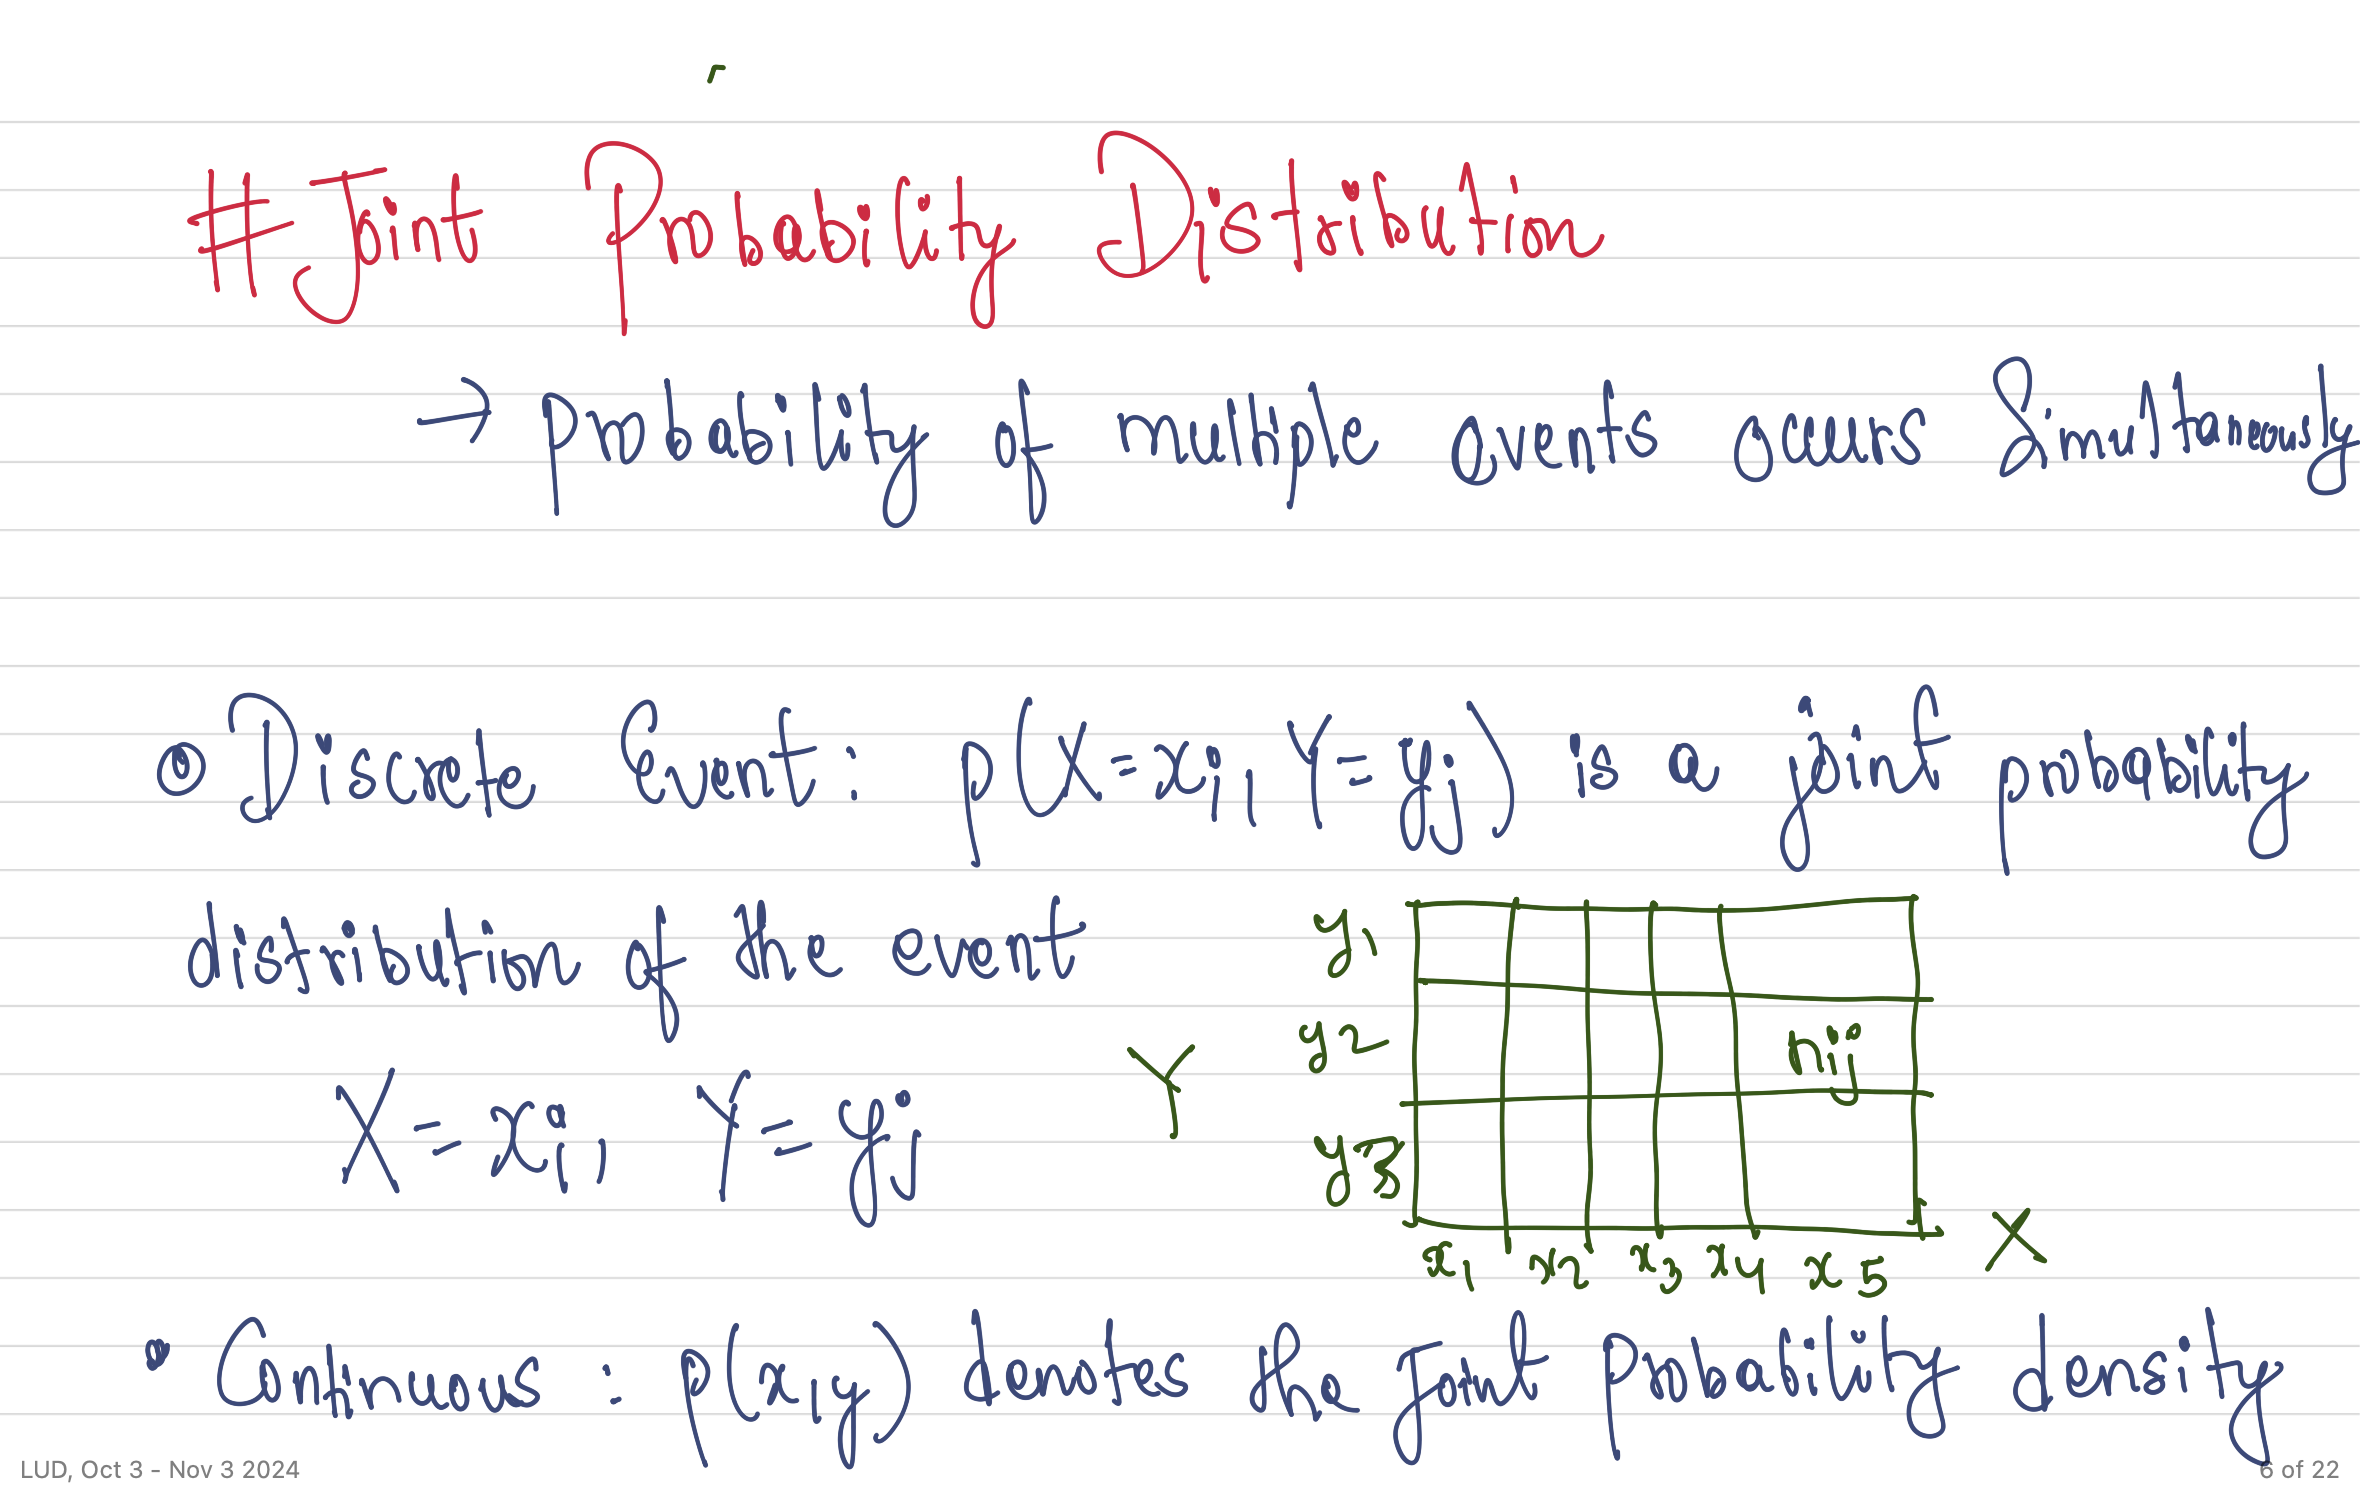 # Joint Probability Distribution
→ Probability of multiple events occurs Simultaneously
Discrete Event: p(X=xi, Y=yj) is a joint probability
distribution of the event
X=xi, Y=yj
y1
y2
nij
Y
y3
X
x1 x2 x3 x4 x5
Continuous: p(x,y) denotes the joint probability density
LUD, Oct 3 - Nov 3 2024
6 of 22